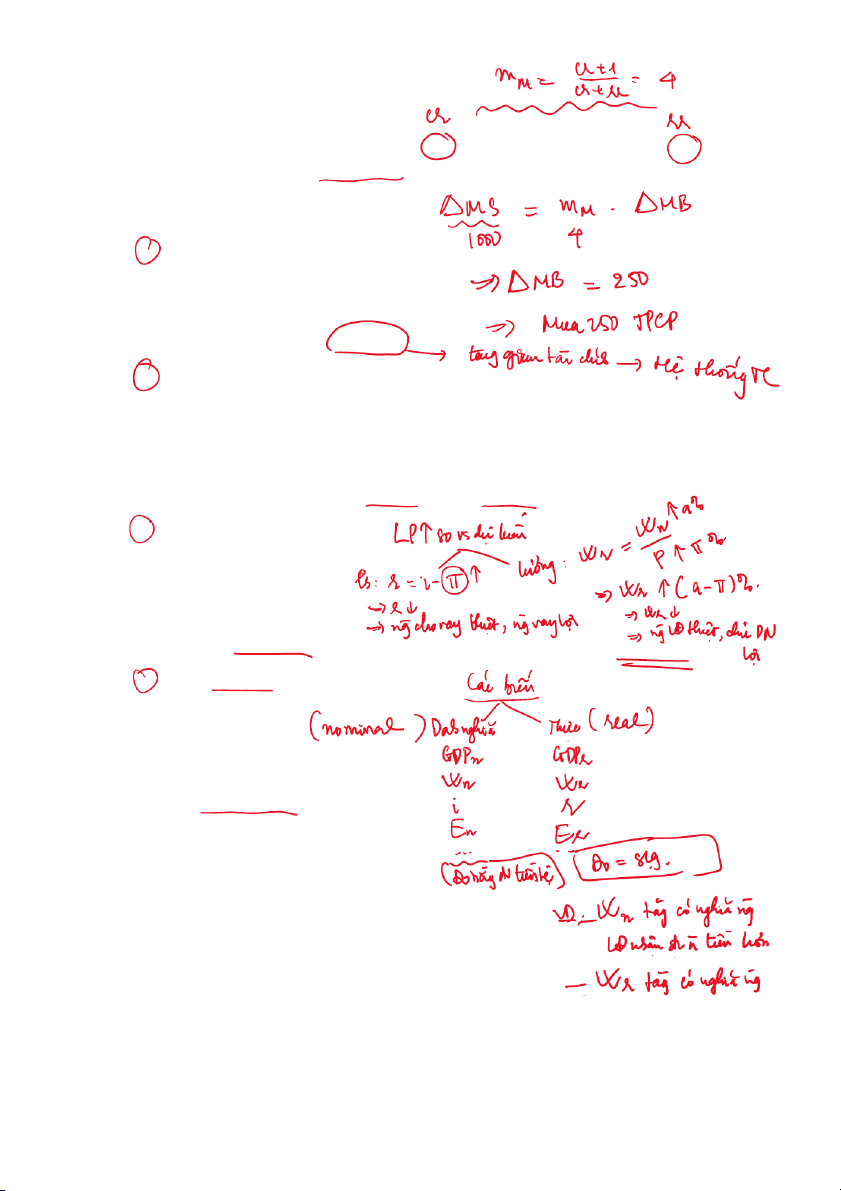 m_M = (cr+1)/(cr+rr) = 4
cr
rr
ΔMS = m_M . ΔMB
1000 4
→ ΔMB = 250
→ Mua 250 TPCP
→ trung gian tài chính → Hệ thống TC
LP↑ so vs dự kiến
ls: r = i - π↑
→ r↓
→ ng cho vay thiệt, ng vay lợi
lương: W_r = W_n ↑a% / P ↑π%
→ W_r ↑ (a-π)%.
→ W_r ↓
→ ng LĐ thiệt, chủ DN
lợi
Các biến
(nominal) Danh nghĩa Thực (real)
GDP_n GDP_r
W_n W_r
i r
E_n E_r
... ..
(Đo bằng đv tiền tệ) Đo = slg.
VD: - W_n tăng có nghĩa ng
LĐ nhận đc n tiền hơn
- W_r tăng có nghĩa ng